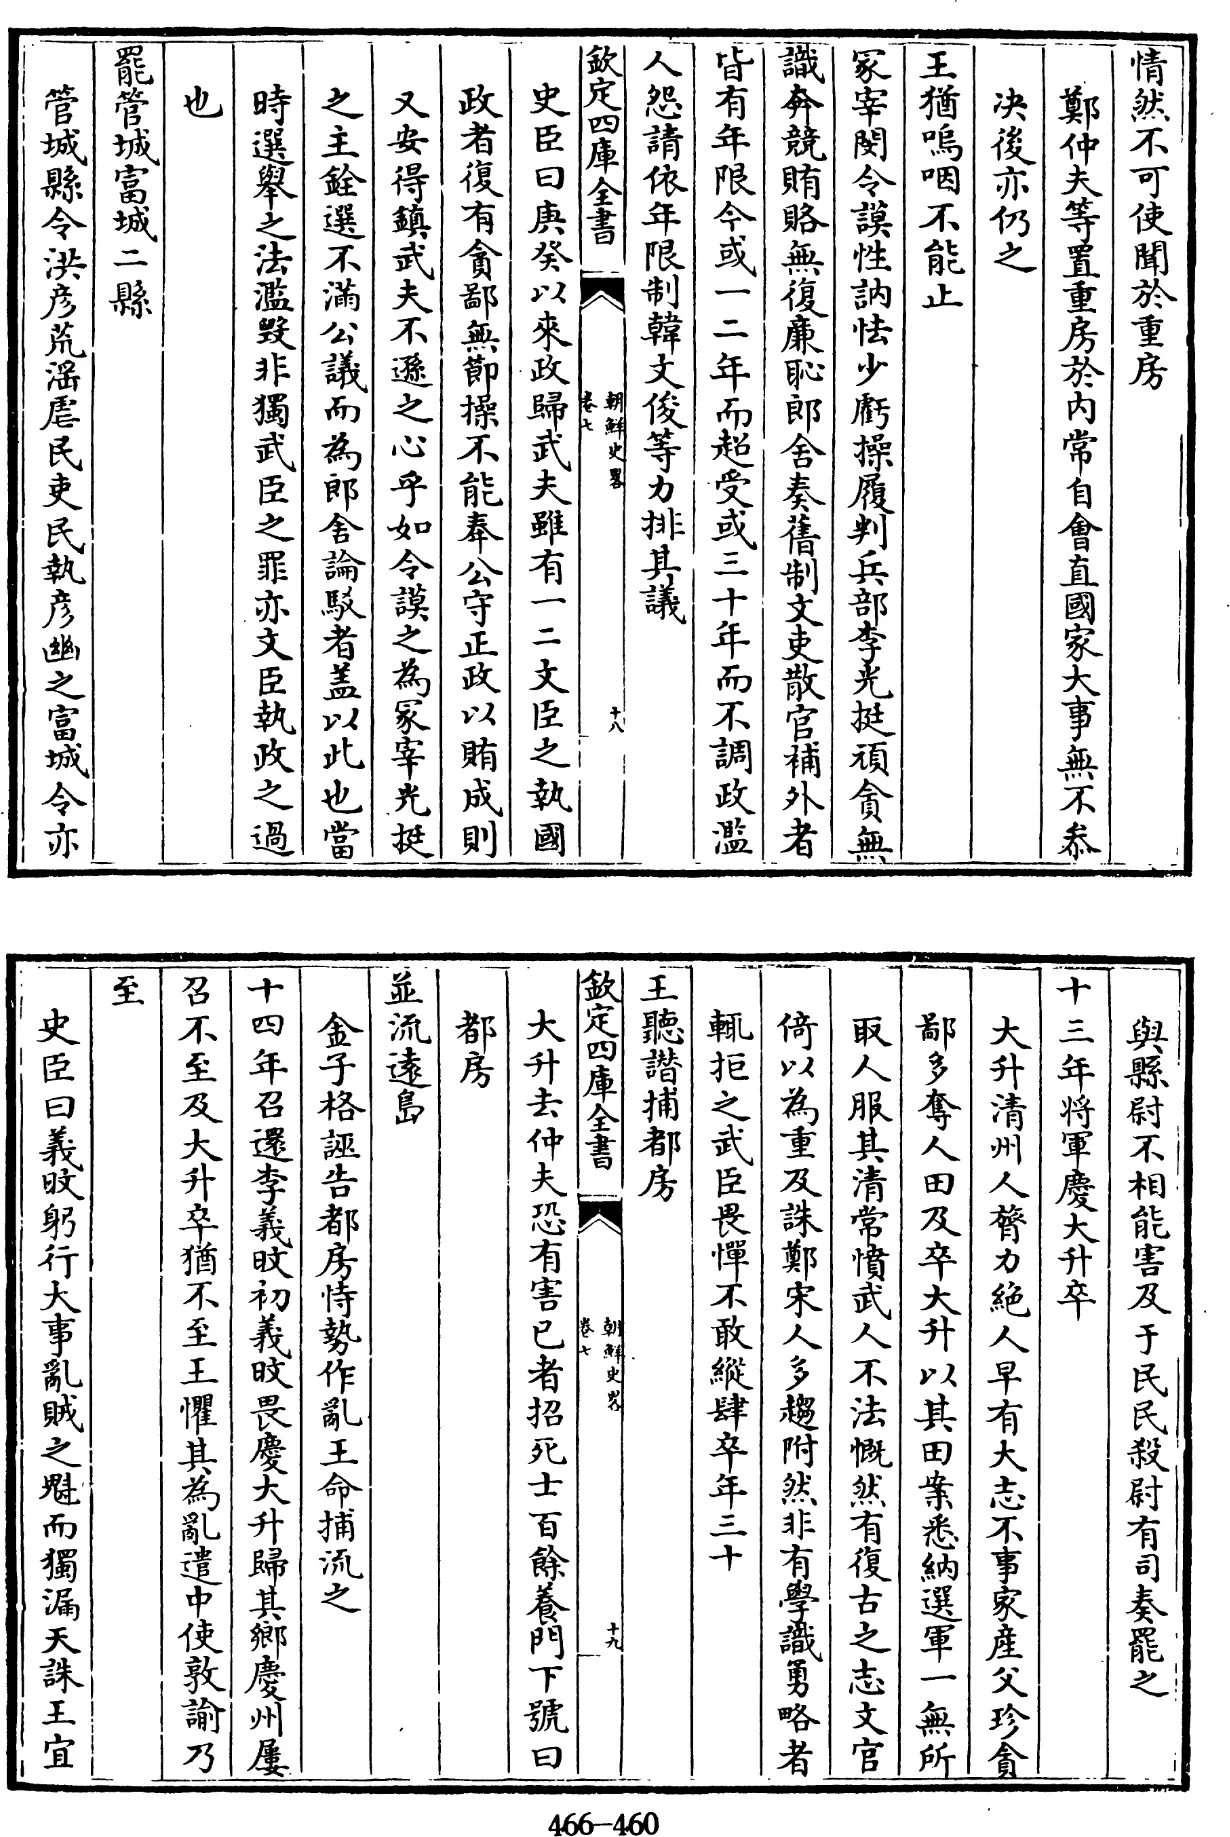 情然不可使聞於重房
鄭仲夫等置重房於内常自會直國家大事無不叅
决後亦仍之
王猶嗚咽不能止
冢宰閔令謨性訥怯少虧操履判兵部李光挺頑貪無
識奔競賄賂無復廉恥郎舍奏舊制文吏散官補外者
皆有年限今或一二年而超受或三十年而不調政濫
人怨請依年限制韓文俊等力排其議
欽定四庫全書
朝鮮史畧
卷七
十八
史臣曰庚癸以來政歸武夫雖有一二文臣之執國
政者復有貪鄙無節操不能奉公守正政以賄成則
又安得鎮武夫不遜之心乎如令謨之為冢宰光挺
之主銓選不滿公議而為郎舍論駁者盖以此也當
時選舉之法濫毀非獨武臣之罪亦文臣執政之過
也
罷管城富城二縣
管城縣令洪彦荒滛虐民吏民執彦幽之富城令亦
與縣尉不相能害及于民民殺尉有司奏罷之
十三年將軍慶大升卒
大升清州人膂力絶人早有大志不事家産父珍貪
鄙多奪人田及卒大升以其田案悉納選軍一無所
取人服其清常憤武人不法慨然有復古之志文官
倚以為重及誅鄭宋人多趨附然非有學識勇略者
輒拒之武臣畏憚不敢縱肆卒年三十
王聽譖捕都房
欽定四庫全書
朝鮮史畧
卷七
十九
大升去仲夫恐有害已者招死士百餘養門下號曰
都房
並流遠島
金子格誣告都房恃勢作亂王命捕流之
十四年召還李義旼初義旼畏慶大升歸其鄉慶州屢
召不至及大升卒猶不至王懼其為亂遣中使敦諭乃
至
史臣曰義旼躬行大事亂賊之魁而獨漏天誅王宜
466-460